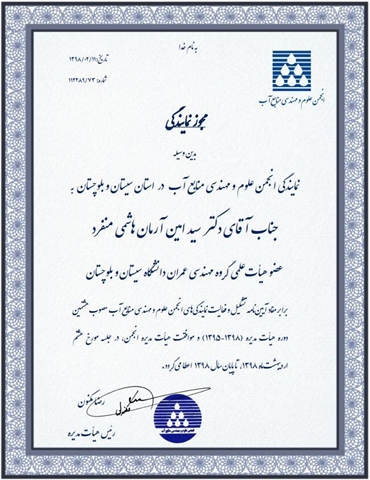 به نام خدا
تاریخ: ۱۳۹۸/۰۲/۱۱
شماره: ۱۱۲۲۸۹/۷۳
انجمن علوم و مهندسی منابع آب
مجوز نمایندگی
بدین وسیله
نمایندگی انجمن علوم و مهندسی منابع آب در استان سیستان و بلوچستان به
جناب آقای دکتر سید امین آرمان هاشمی منفرد
عضو هیأت علمی گروه مهندسی عمران دانشگاه سیستان و بلوچستان
برابر مفاد آیین‌نامه تشکیل و فعالیت نمایندگی‌های انجمن علوم و مهندسی منابع آب مصوب هشتمین
دوره هیأت مدیره (۱۳۹۸-۱۳۹۵) و موافقت هیأت مدیره انجمن، در جلسه مورخ هشتم
اردیبهشت ماه ۱۳۹۸، تا پایان سال ۱۳۹۸ اعطا می‌گردد.
رضا مکنون
رئیس هیأت مدیره
انجمن علوم و مهندسی منابع آب